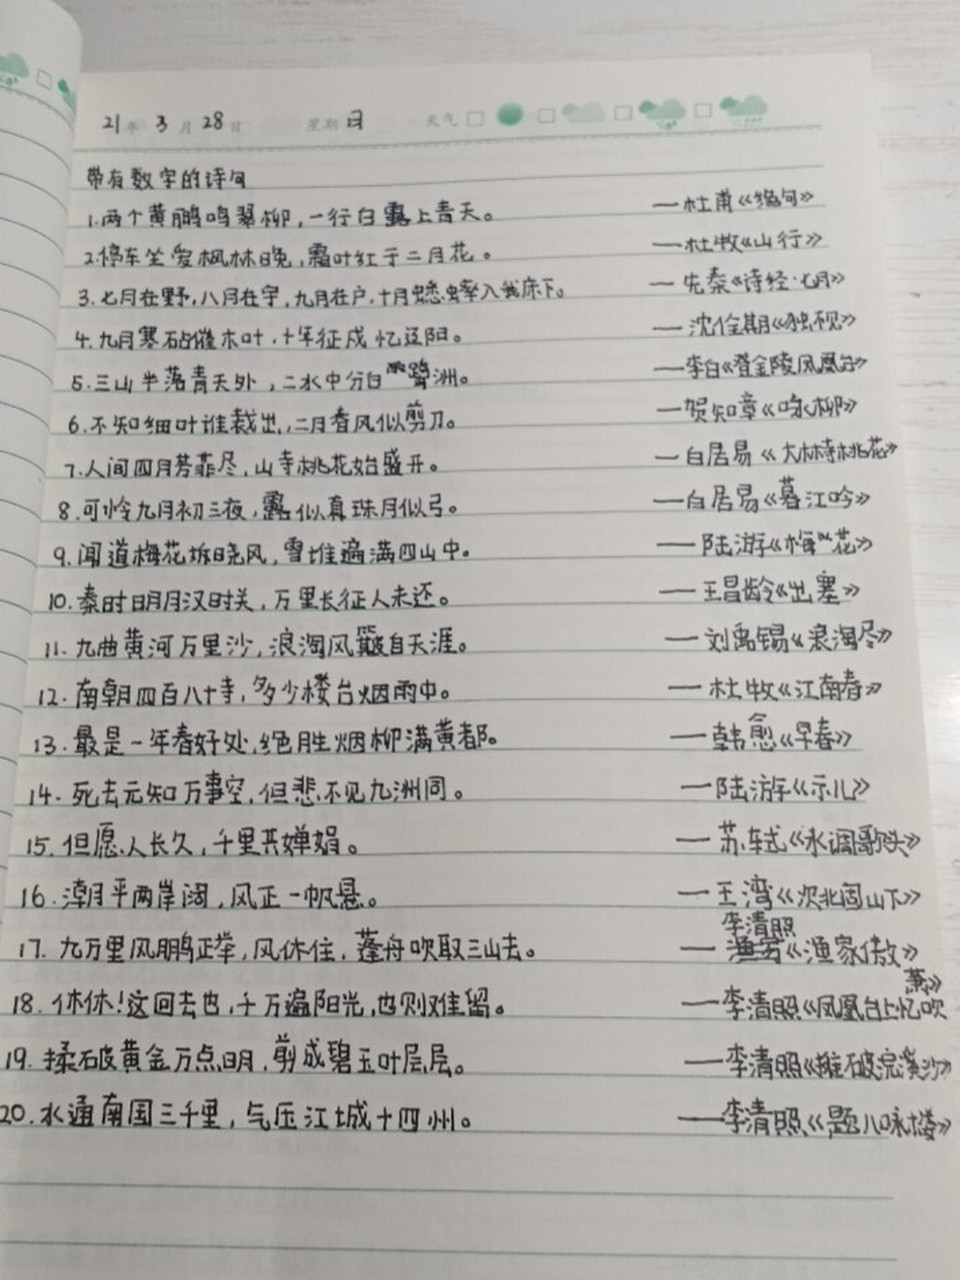 21年 3月 28日 星期日 天气
带有数字的诗句
1.两个黄鹂鸣翠柳,一行白露上青天。 —杜甫《绝句》
2.停车坐爱枫林晚,霜叶红于二月花。 —杜牧《山行》
3.七月在野,八月在宇,九月在户,十月蟋蟀入我床下。 —先秦《诗经·七月》
4.九月寒砧催木叶,十年征戍忆辽阳。 —沈佺期《独不见》
5.三山半落青天外,二水中分白鹭洲。 —李白《登金陵凤凰台》
6.不知细叶谁裁出,二月春风似剪刀。 —贺知章《咏柳》
7.人间四月芳菲尽,山寺桃花始盛开。 —白居易《大林寺桃花》
8.可怜九月初三夜,露似真珠月似弓。 —白居易《暮江吟》
9.闻道梅花坼晓风,雪堆遍满四山中。 —陆游《梅花》
10.秦时明月汉时关,万里长征人未还。 —王昌龄《出塞》
11.九曲黄河万里沙,浪淘风簸自天涯。 —刘禹锡《浪淘尽》
12.南朝四百八十寺,多少楼台烟雨中。 —杜牧《江南春》
13.最是一年春好处,绝胜烟柳满黄都。 —韩愈《早春》
14.死去元知万事空,但悲不见九洲同。 —陆游《示儿》
15.但愿人长久,千里共婵娟。 —苏轼《水调歌头》
16.潮平两岸阔,风正一帆悬。 —王湾《次北固山下》
17.九万里风鹏正举,风休住,蓬舟吹取三山去。 —李清照《渔家傲》
18.休休!这回去也,千万遍阳光,也则难留。 —李清照《凤凰台上忆吹萧》
19.揉破黄金万点明,剪成碧玉叶层层。 —李清照《摊破浣溪沙》
20.水通南国三千里,气压江城十四州。 —李清照《题八咏楼》